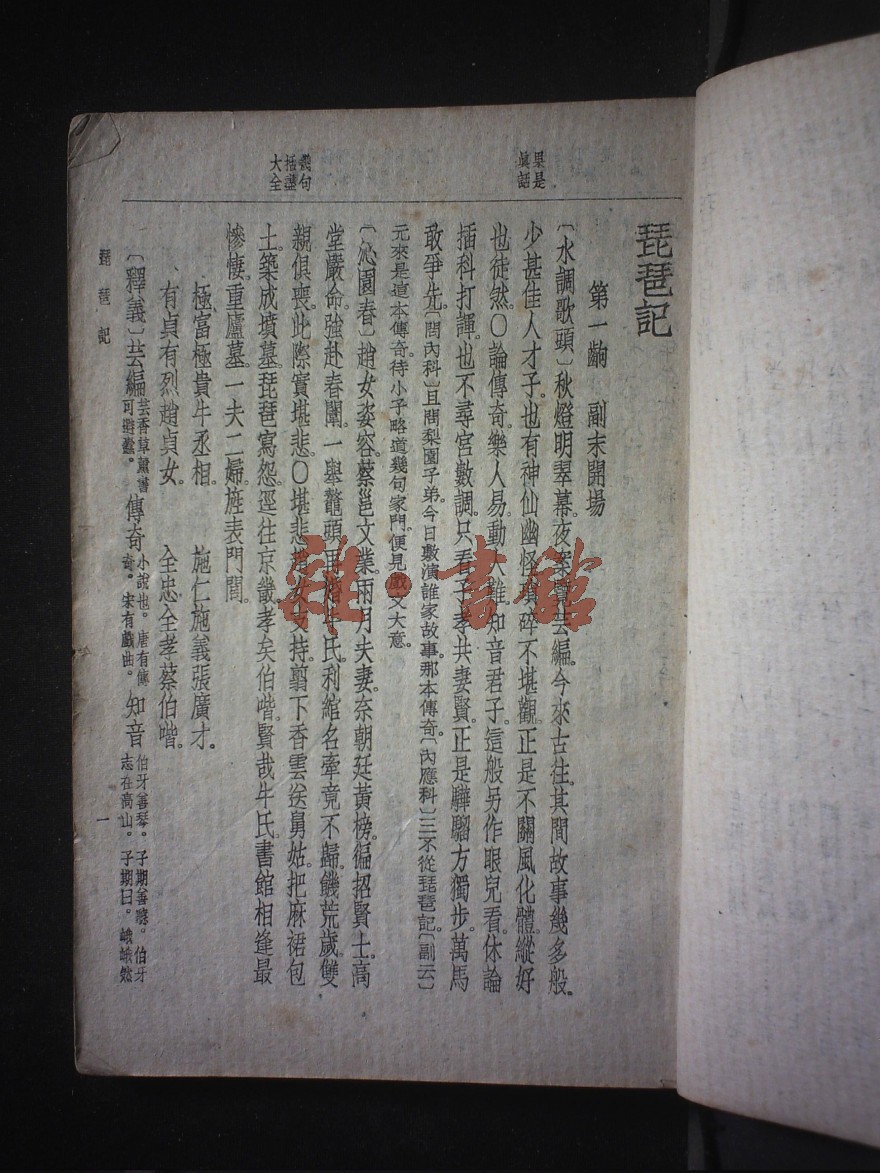 果是
真話
幾句
括盡
大全
琵琶記
第一齣　副末開場
〔水調歌頭〕秋燈明翠幕。夜案覽芸編。今來古往。其間故事幾多般。
少甚佳人才子。也有神仙幽怪。瑣碎不堪觀。正是不關風化體。縱好
也徒然。〇論傳奇。樂人易。動人難。知音君子。這般另作眼兒看。休論
插科打諢。也不尋宮數調。只看子孝共妻賢。正是驊騮方獨步。萬馬
敢爭先。〔問內科〕且問梨園子弟。今日敷演誰家故事。那本傳奇。〔內應科〕三不從琵琶記。〔副云〕
元來是這本傳奇。待小子略道幾句家門。便見戲文大意。
〔沁園春〕趙女姿容。蔡邕文業。兩月夫妻。奈朝廷黃榜。徧招賢士。高
堂嚴命。強赴春闈。一舉鼇頭。再婚牛氏。利綰名牽竟不歸。饑荒歲。雙
親俱喪。此際實堪悲。〇堪悲趙女支持。翦下香雲送舅姑。把麻裙包
土。築成墳墓。琵琶寫怨。逕往京畿。孝矣伯喈。賢哉牛氏。書館相逢最
慘悽。重廬墓。一夫二婦。旌表門閭。
極富極貴牛丞相。　施仁施義張廣才。
有貞有烈趙貞女。　全忠全孝蔡伯喈。
〔釋義〕芸編芸香草薰書可辟蠹。傳奇小說也。唐有傳奇。宋有戲曲。知音伯牙善琴。子期善聽。伯牙志在高山。子期曰。峨峨然
琵琶記
一
雜·書館